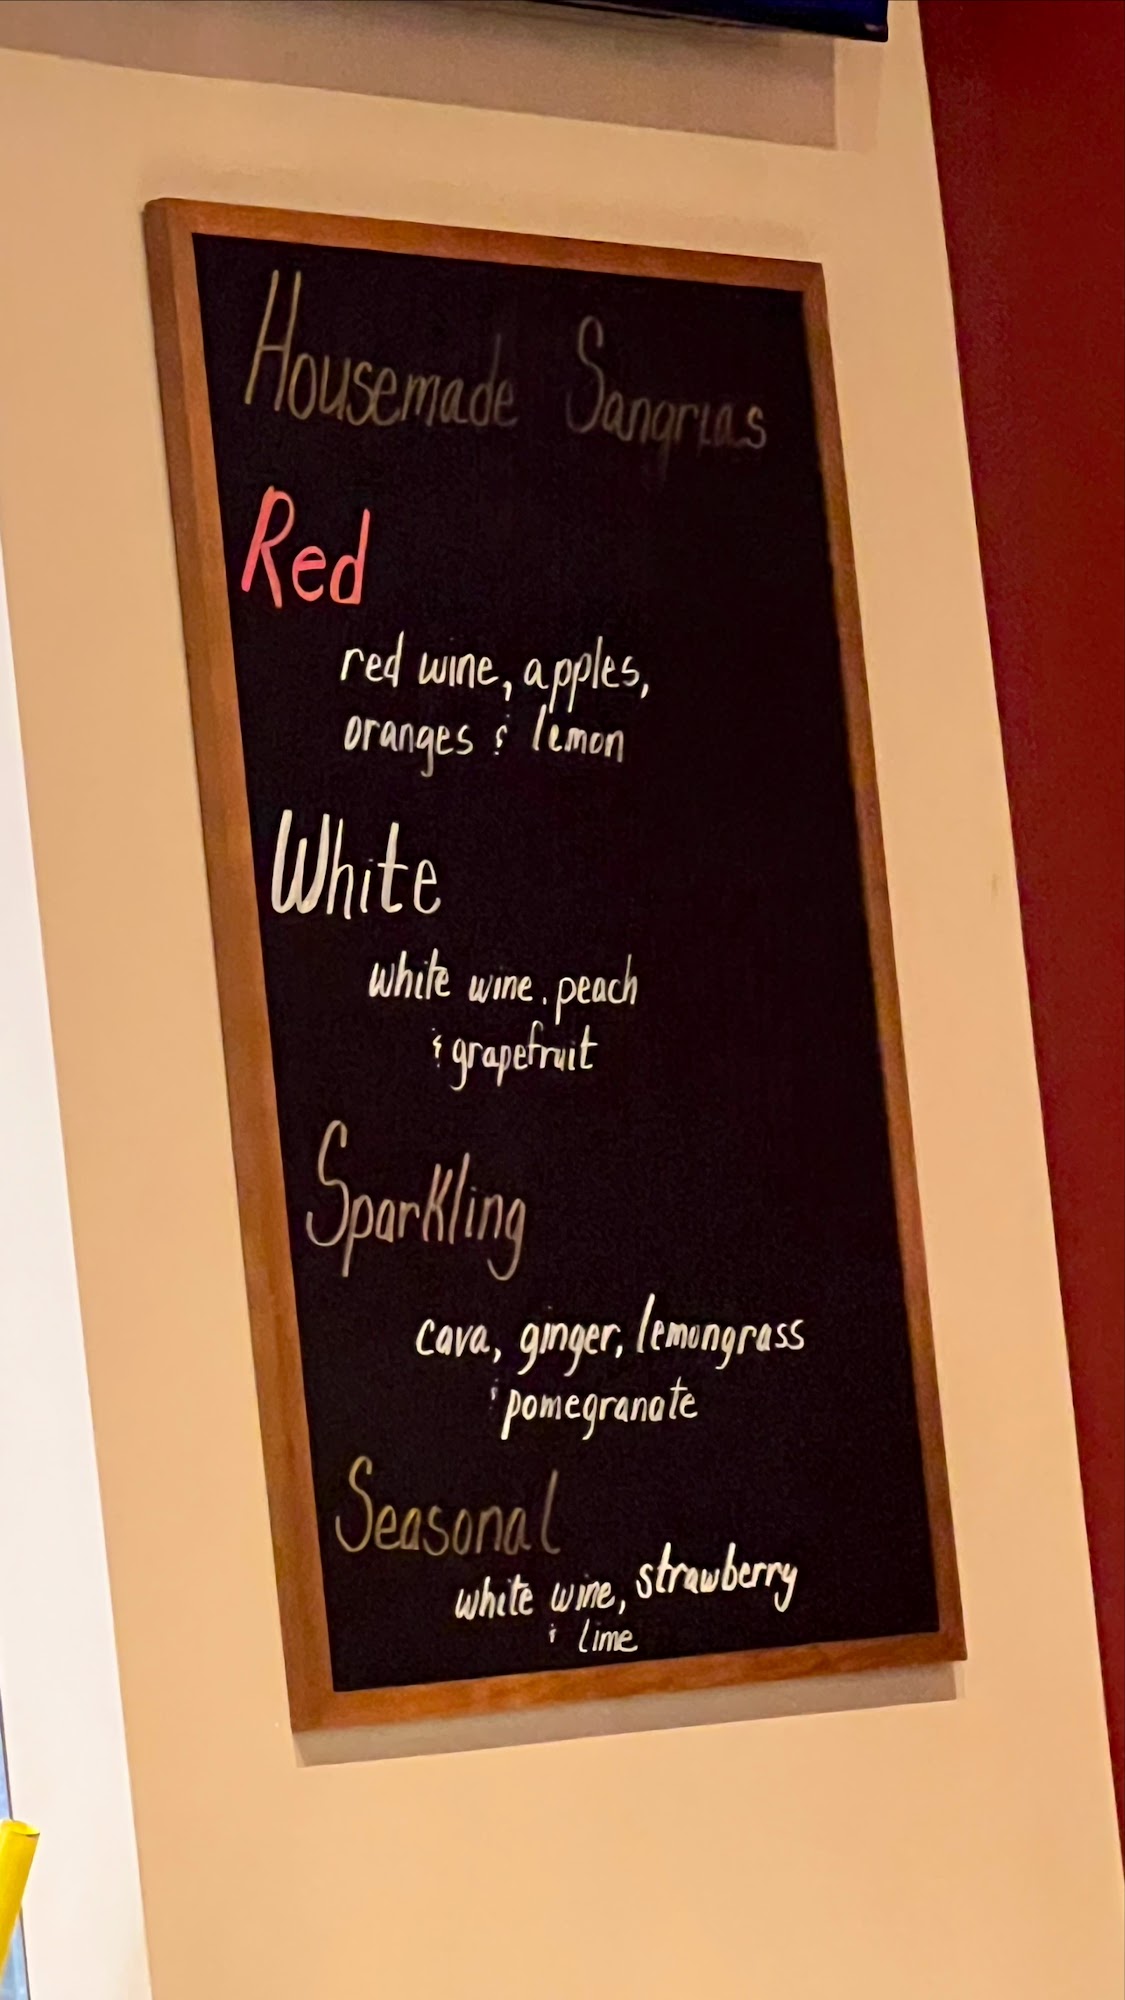 Housemade Sangrias
Red
red wine, apples,
oranges & lemon
White
white wine, peach
& grapefruit
Sparkling
cava, ginger, lemongrass
& pomegranate
Seasonal
white wine, strawberry
& lime